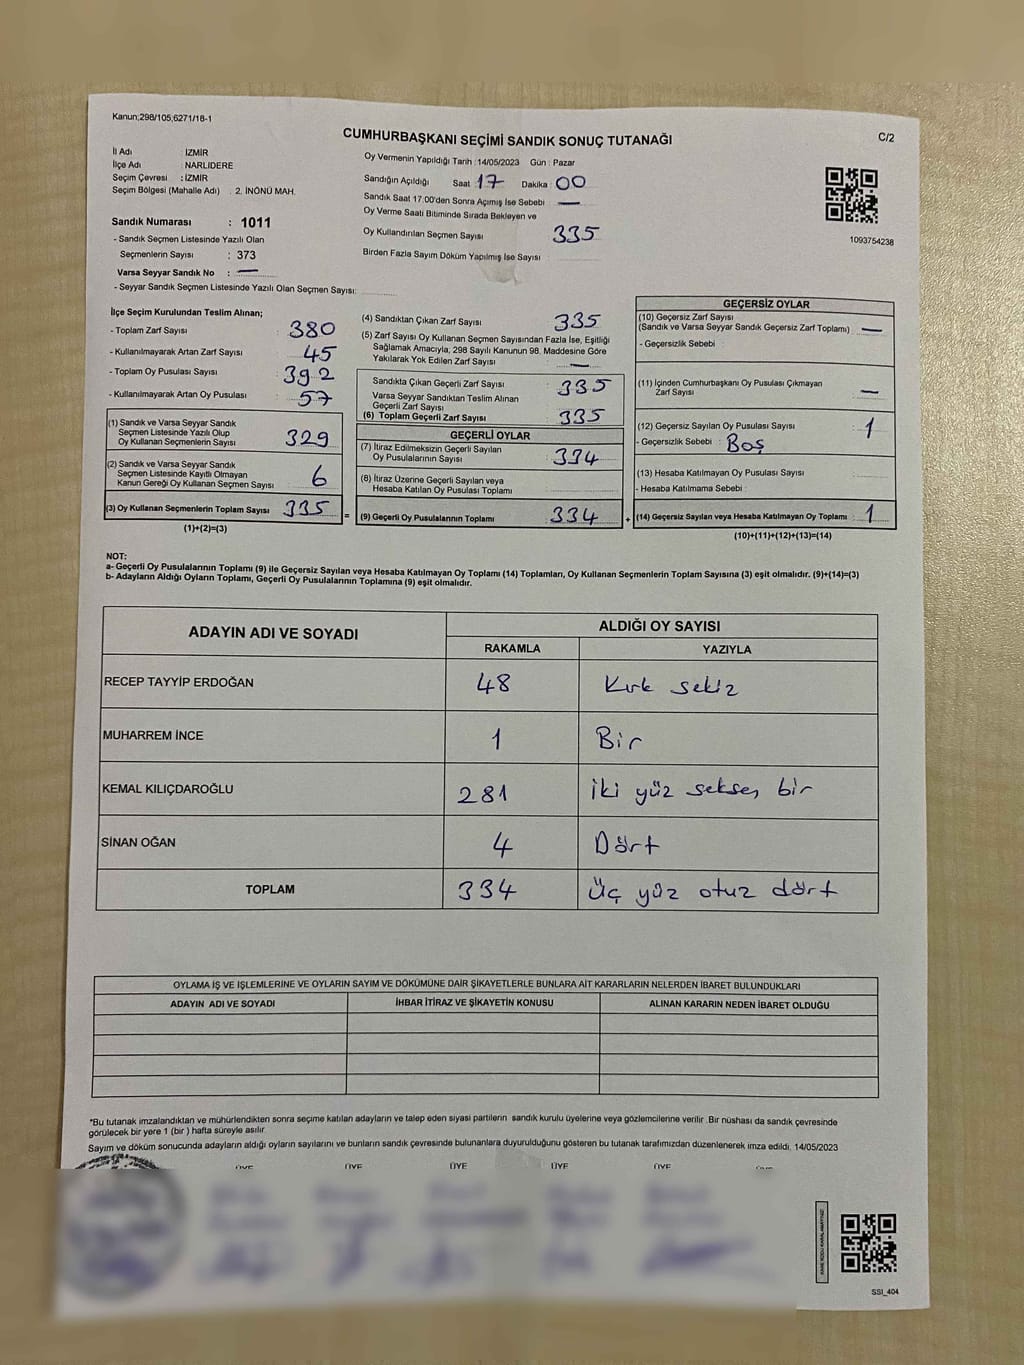 Kanun;298/105,6271/18-1
CUMHURBAŞKANI SEÇİMİ SANDIK SONUÇ TUTANAĞI
C/2
İl Adı İZMİR
İlçe Adı NARLIDERE
Seçim Çevresi : İZMİR
Seçim Bölgesi (Mahalle Adı) . 2. İNÖNÜ MAH.
Sandık Numarası : 1011
- Sandık Seçmen Listesinde Yazılı Olan
Seçmenlerin Sayısı : 373
Varsa Seyyar Sandık No : —
- Seyyar Sandık Seçmen Listesinde Yazılı Olan Seçmen Sayısı:
Oy Vermenin Yapıldığı Tarih : 14/05/2023 Gün : Pazar
Sandığın Açıldığı Saat 17 Dakika : 00
Sandık Saat 17:00'den Sonra Açımış İse Sebebi : —
Oy Verme Saati Bitiminde Sırada Bekleyen ve
Oy Kullandırılan Seçmen Sayısı 335
Birden Fazla Sayım Döküm Yapılmış İse Sayısı :
1093754238
İlçe Seçim Kurulundan Teslim Alınan;
- Toplam Zarf Sayısı : 380
- Kullanılmayarak Artan Zarf Sayısı : 45
- Toplam Oy Pusulası Sayısı : 392
- Kullanılmayarak Artan Oy Pusulası : 57
(1) Sandık ve Varsa Seyyar Sandık
Seçmen Listesinde Yazılı Olup
Oy Kullanan Seçmenlerin Sayısı : 329
(2) Sandık ve Varsa Seyyar Sandık
Seçmen Listesinde Kayıtlı Olmayan
Kanun Gereği Oy Kullanan Seçmen Sayısı : 6
(3) Oy Kullanan Seçmenlerin Toplam Sayısı : 335
(1)+(2)=(3)
(4) Sandıktan Çıkan Zarf Sayısı : 335
(5) Zarf Sayısı Oy Kullanan Seçmen Sayısından Fazla İse, Eşitliği
Sağlamak Amacıyla, 298 Sayılı Kanunun 98. Maddesine Göre
Yakılarak Yok Edilen Zarf Sayısı : —
Sandıkta Çıkan Geçerli Zarf Sayısı : 335
Varsa Seyyar Sandıktan Teslim Alınan
Geçerli Zarf Sayısı
(6) Toplam Geçerli Zarf Sayısı : 335
GEÇERLİ OYLAR
(7) İtiraz Edilmeksizin Geçerli Sayılan
Oy Pusulalarının Sayısı : 334
(8) İtiraz Üzerine Geçerli Sayılan veya
Hesaba Katılan Oy Pusulası Toplamı :
= (9) Geçerli Oy Pusulalarının Toplamı : 334 +
GEÇERSİZ OYLAR
(10) Geçersiz Zarf Sayısı
(Sandık ve Varsa Seyyar Sandık Geçersiz Zarf Toplamı) : —
- Geçersizlik Sebebi :
(11) İçinden Cumhurbaşkanı Oy Pusulası Çıkmayan
Zarf Sayısı : —
(12) Geçersiz Sayılan Oy Pusulası Sayısı : 1
- Geçersizlik Sebebi : Boş
(13) Hesaba Katılmayan Oy Pusulası Sayısı :
- Hesaba Katılmama Sebebi :
(14) Geçersiz Sayılan veya Hesaba Katılmayan Oy Toplamı : 1
(10)+(11)+(12)+(13)=(14)
NOT:
a- Geçerli Oy Pusulalarının Toplamı (9) ile Geçersiz Sayılan veya Hesaba Katılmayan Oy Toplamı (14) Toplamları, Oy Kullanan Seçmenlerin Toplam Sayısına (3) eşit olmalıdır. (9)+(14)=(3)
b- Adayların Aldığı Oyların Toplamı, Geçerli Oy Pusulalarının Toplamına (9) eşit olmalıdır.
ADAYIN ADI VE SOYADI ALDIĞI OY SAYISI
RAKAMLA YAZIYLA
RECEP TAYYİP ERDOĞAN 48 Kırk sekiz
MUHARREM İNCE 1 Bir
KEMAL KILIÇDAROĞLU 281 iki yüz seksen bir
SİNAN OĞAN 4 Dört
TOPLAM 334 Üç yüz otuz dört
OYLAMA İŞ VE İŞLEMLERİNE VE OYLARIN SAYIM VE DÖKÜMÜNE DAİR ŞİKAYETLERLE BUNLARA AİT KARARLARIN NELERDEN İBARET BULUNDUKLARI
ADAYIN ADI VE SOYADI İHBAR İTİRAZ VE ŞİKAYETİN KONUSU ALINAN KARARIN NEDEN İBARET OLDUĞU
*Bu tutanak imzalandıktan ve mühürlendikten sonra seçime katılan adayların ve talep eden siyasi partilerin sandık kurulu üyelerine veya gözlemcilerine verilir. Bir nüshası da sandık çevresinde
görülecek bir yere 1 (bir ) hafta süreyle asılır.
Sayım ve döküm sonucunda adayların aldığı oyların sayılarını ve bunların sandık çevresinde bulunanlara duyurulduğunu gösteren bu tutanak tarafımızdan düzenlenerek imza edildi. 14/05/2023
ÜYE ÜYE ÜYE ÜYE ÜYE
SSI_404